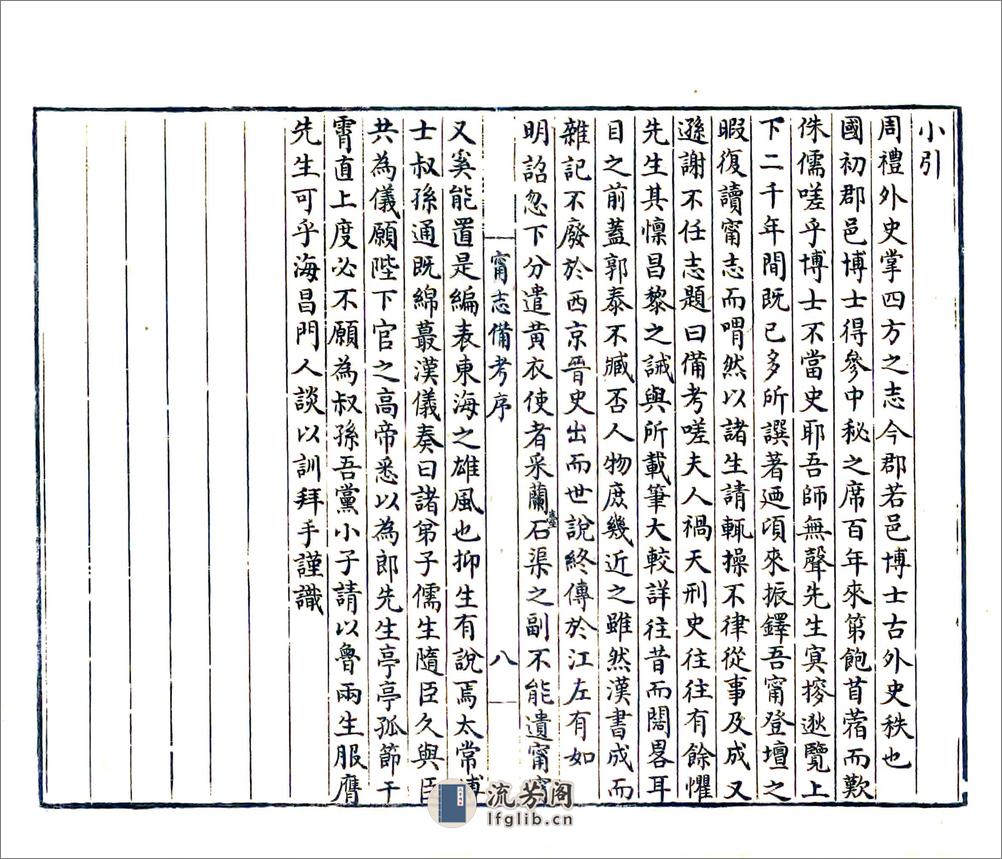 小引
周禮外史掌四方之志今郡若邑博士古外史秩也
國初郡邑博士得參中秘之席百年來第飽苜蓿而歎
侏儒嗟乎博士不當史耶吾師無聲先生寞㩒逖覽上
下二千年間既已多所譔著迺頃來振鐸吾甯登壇之
暇復讀甯志而喟然以諸生請輒操不律從事及成又
遜謝不任志題曰備考嗟夫人禍天刑史往往有餘懼
先生其懔昌黎之誡與所載筆大較詳往昔而闊畧耳
目之前蓋郭泰不臧否人物庶幾近之雖然漢書成而
雜記不廢於西京晉史出而世說終傳於江左有如
明詔忽下分遣黃衣使者采蘭臺石渠之副不能遺甯
甯志備考序
八
又奚能置是編表東海之雄風也抑生有說焉太常博
士叔孫通既綿蕞漢儀奏曰諸弟子儒生隨臣久與臣
共為儀願陛下官之高帝悉以為郎先生亭亭孤節干
霄直上度必不願為叔孫吾黨小子請以魯兩生服膺
先生可乎海昌門人談以訓拜手謹識
流芳阁
lfglib.cn